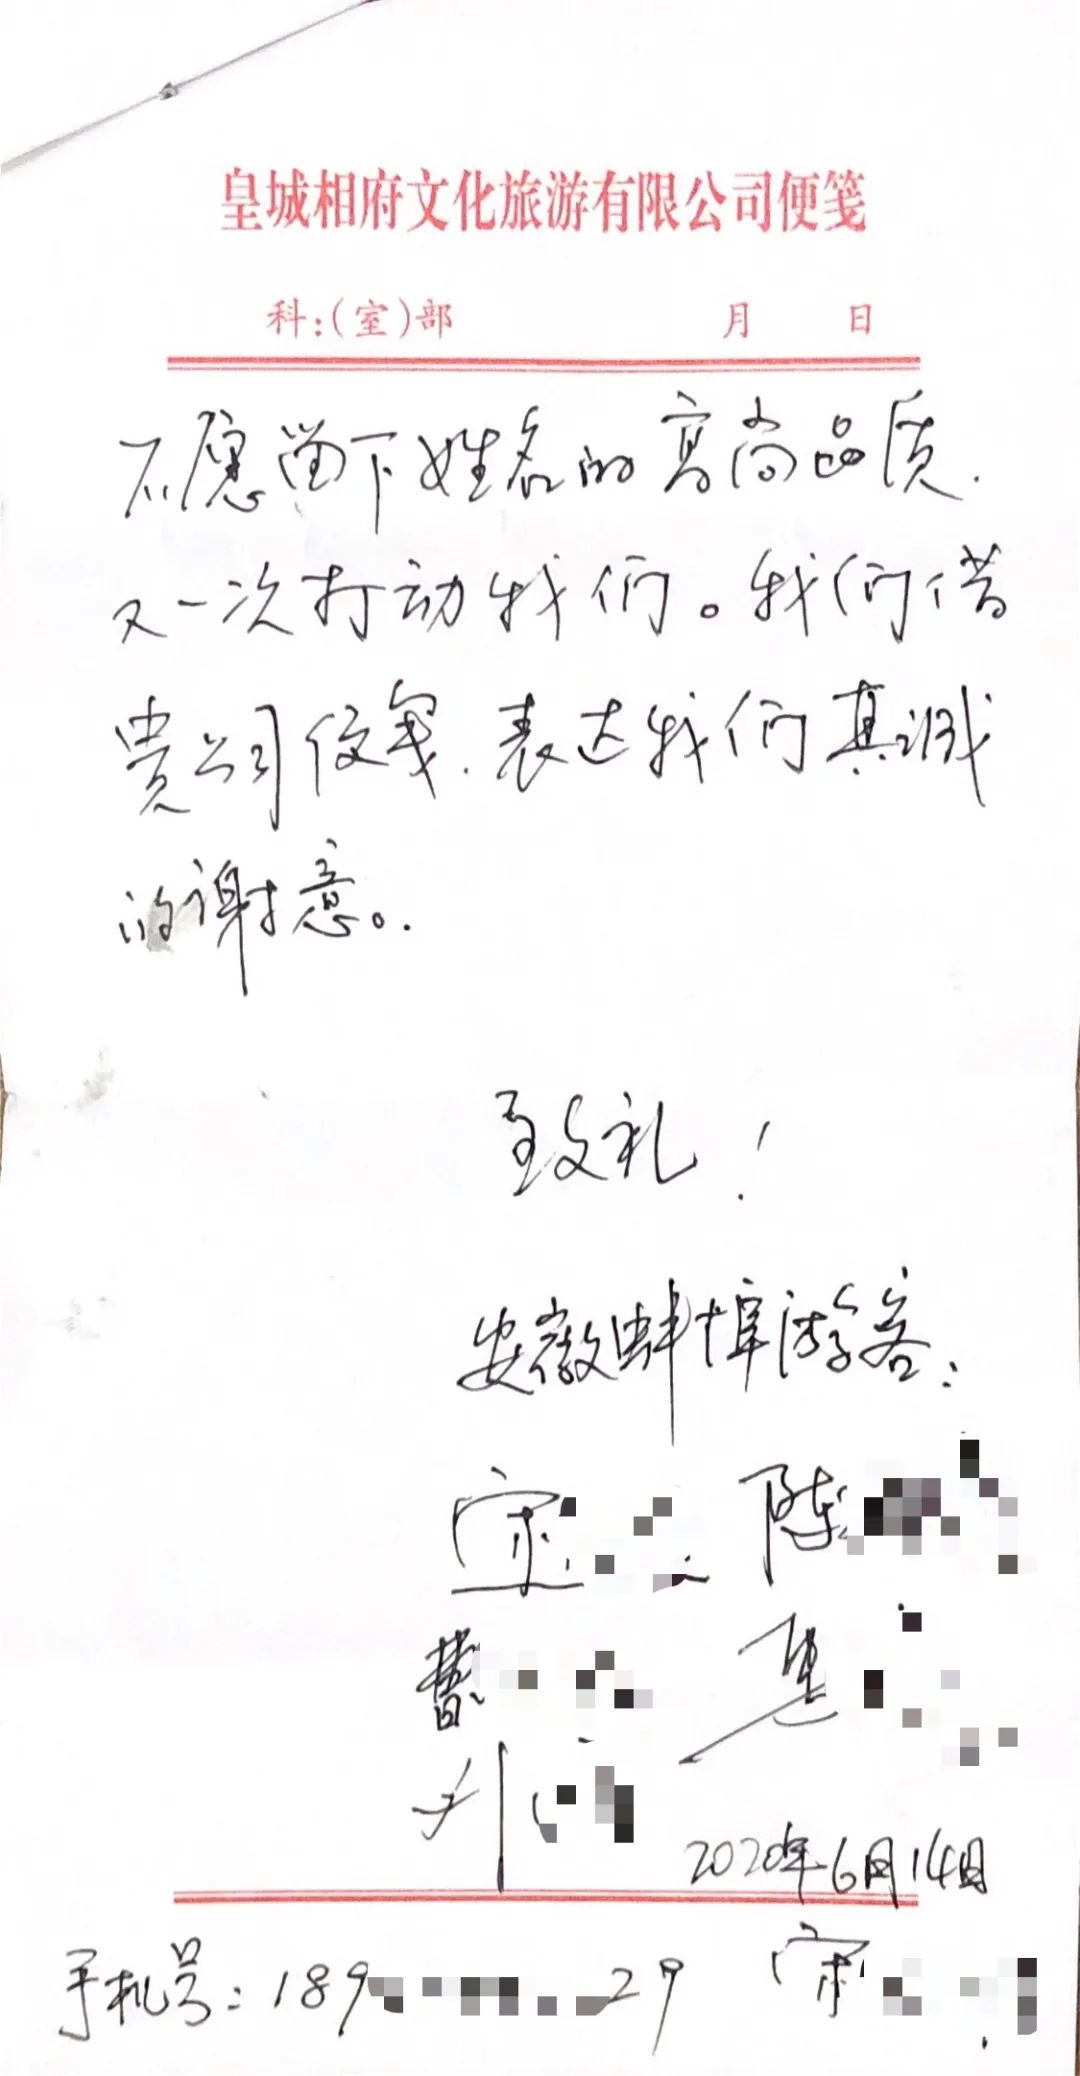 皇城相府文化旅游有限公司便笺
科:(室)部 月 日
不愿留下姓名的高尚品质.
又一次打动我们。我们借
贵公司便笺.表达我们真诚
的谢意。.
致礼!
安徽蚌埠游客:
宋 陈
曹
2020年6月14日
手机号:189 29 宋